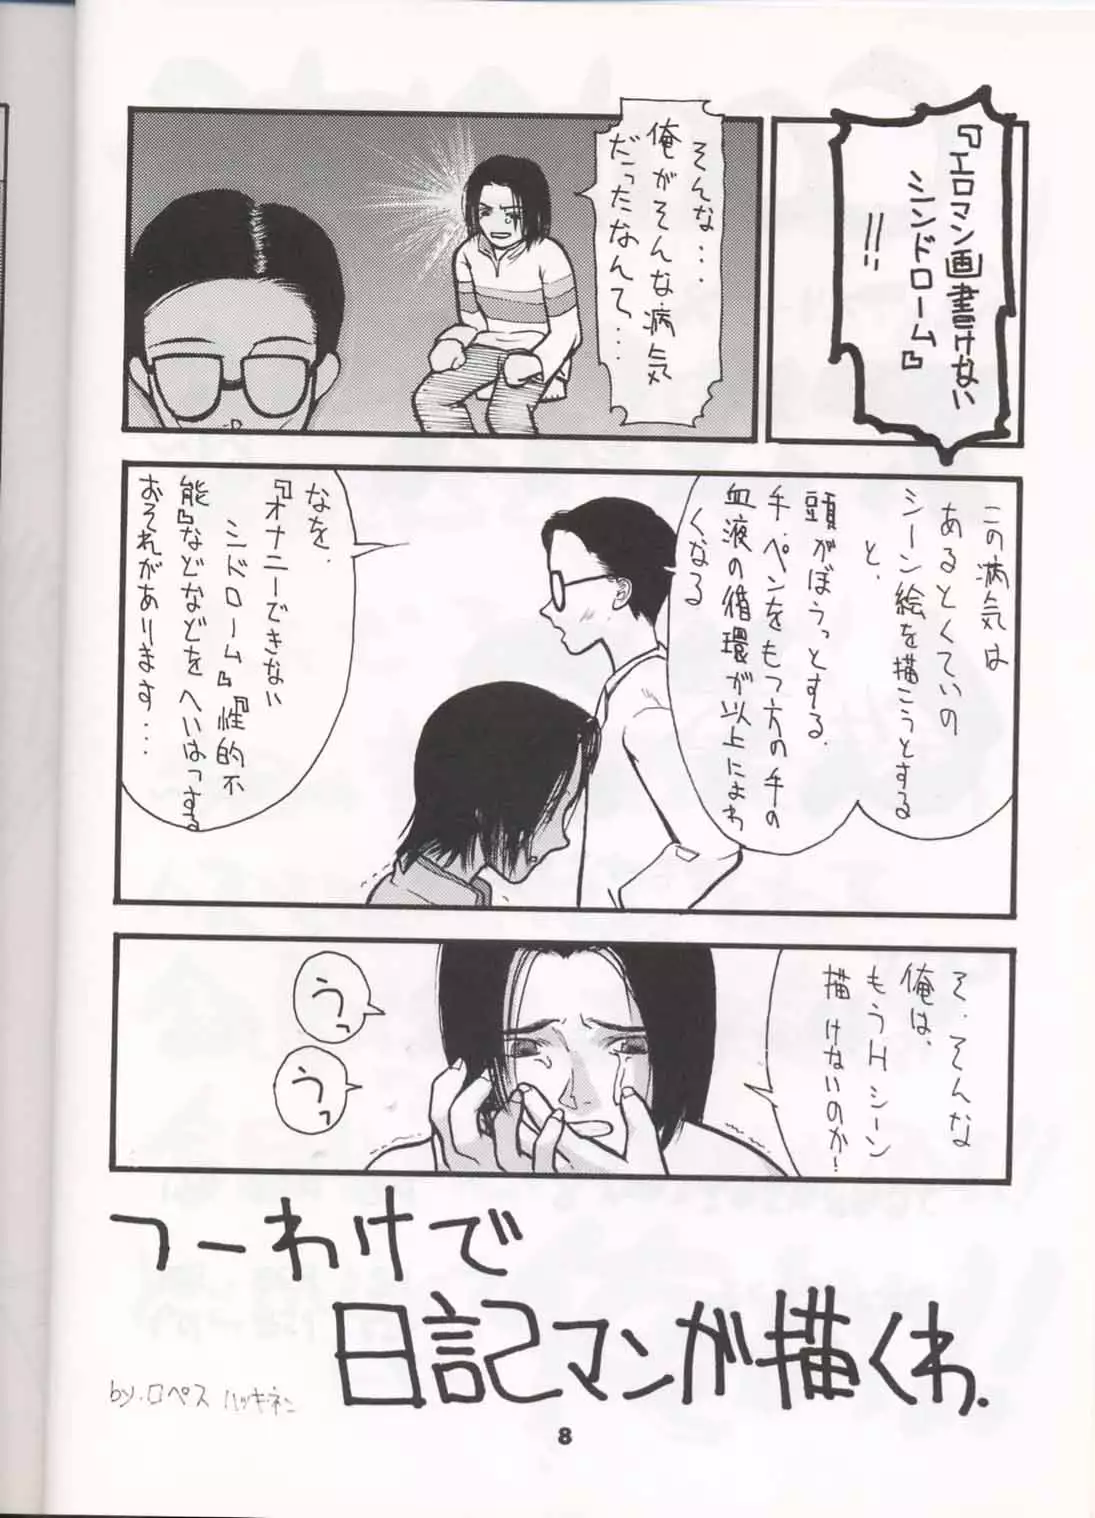 『エロマン画書けない
シンドローム』
!!
そんな…
俺がそんな病気
だったなんて…
この病気は
あるとくていの
シーン絵を描こうとする
と、
頭がぼうっとする.
手・ペンをもつ方の手の
血液の循環が以上によわ
くなる
なを、
『オナニーできない
シドローム』『性的不
能』などなどをへいはっする
おそれがあります…
そ・そんな
俺は、
もうHシーン
描けないのか!
うっ
うっ
つーわけで
日記マンが描くわ.
by.ロペス ハッキネン
8